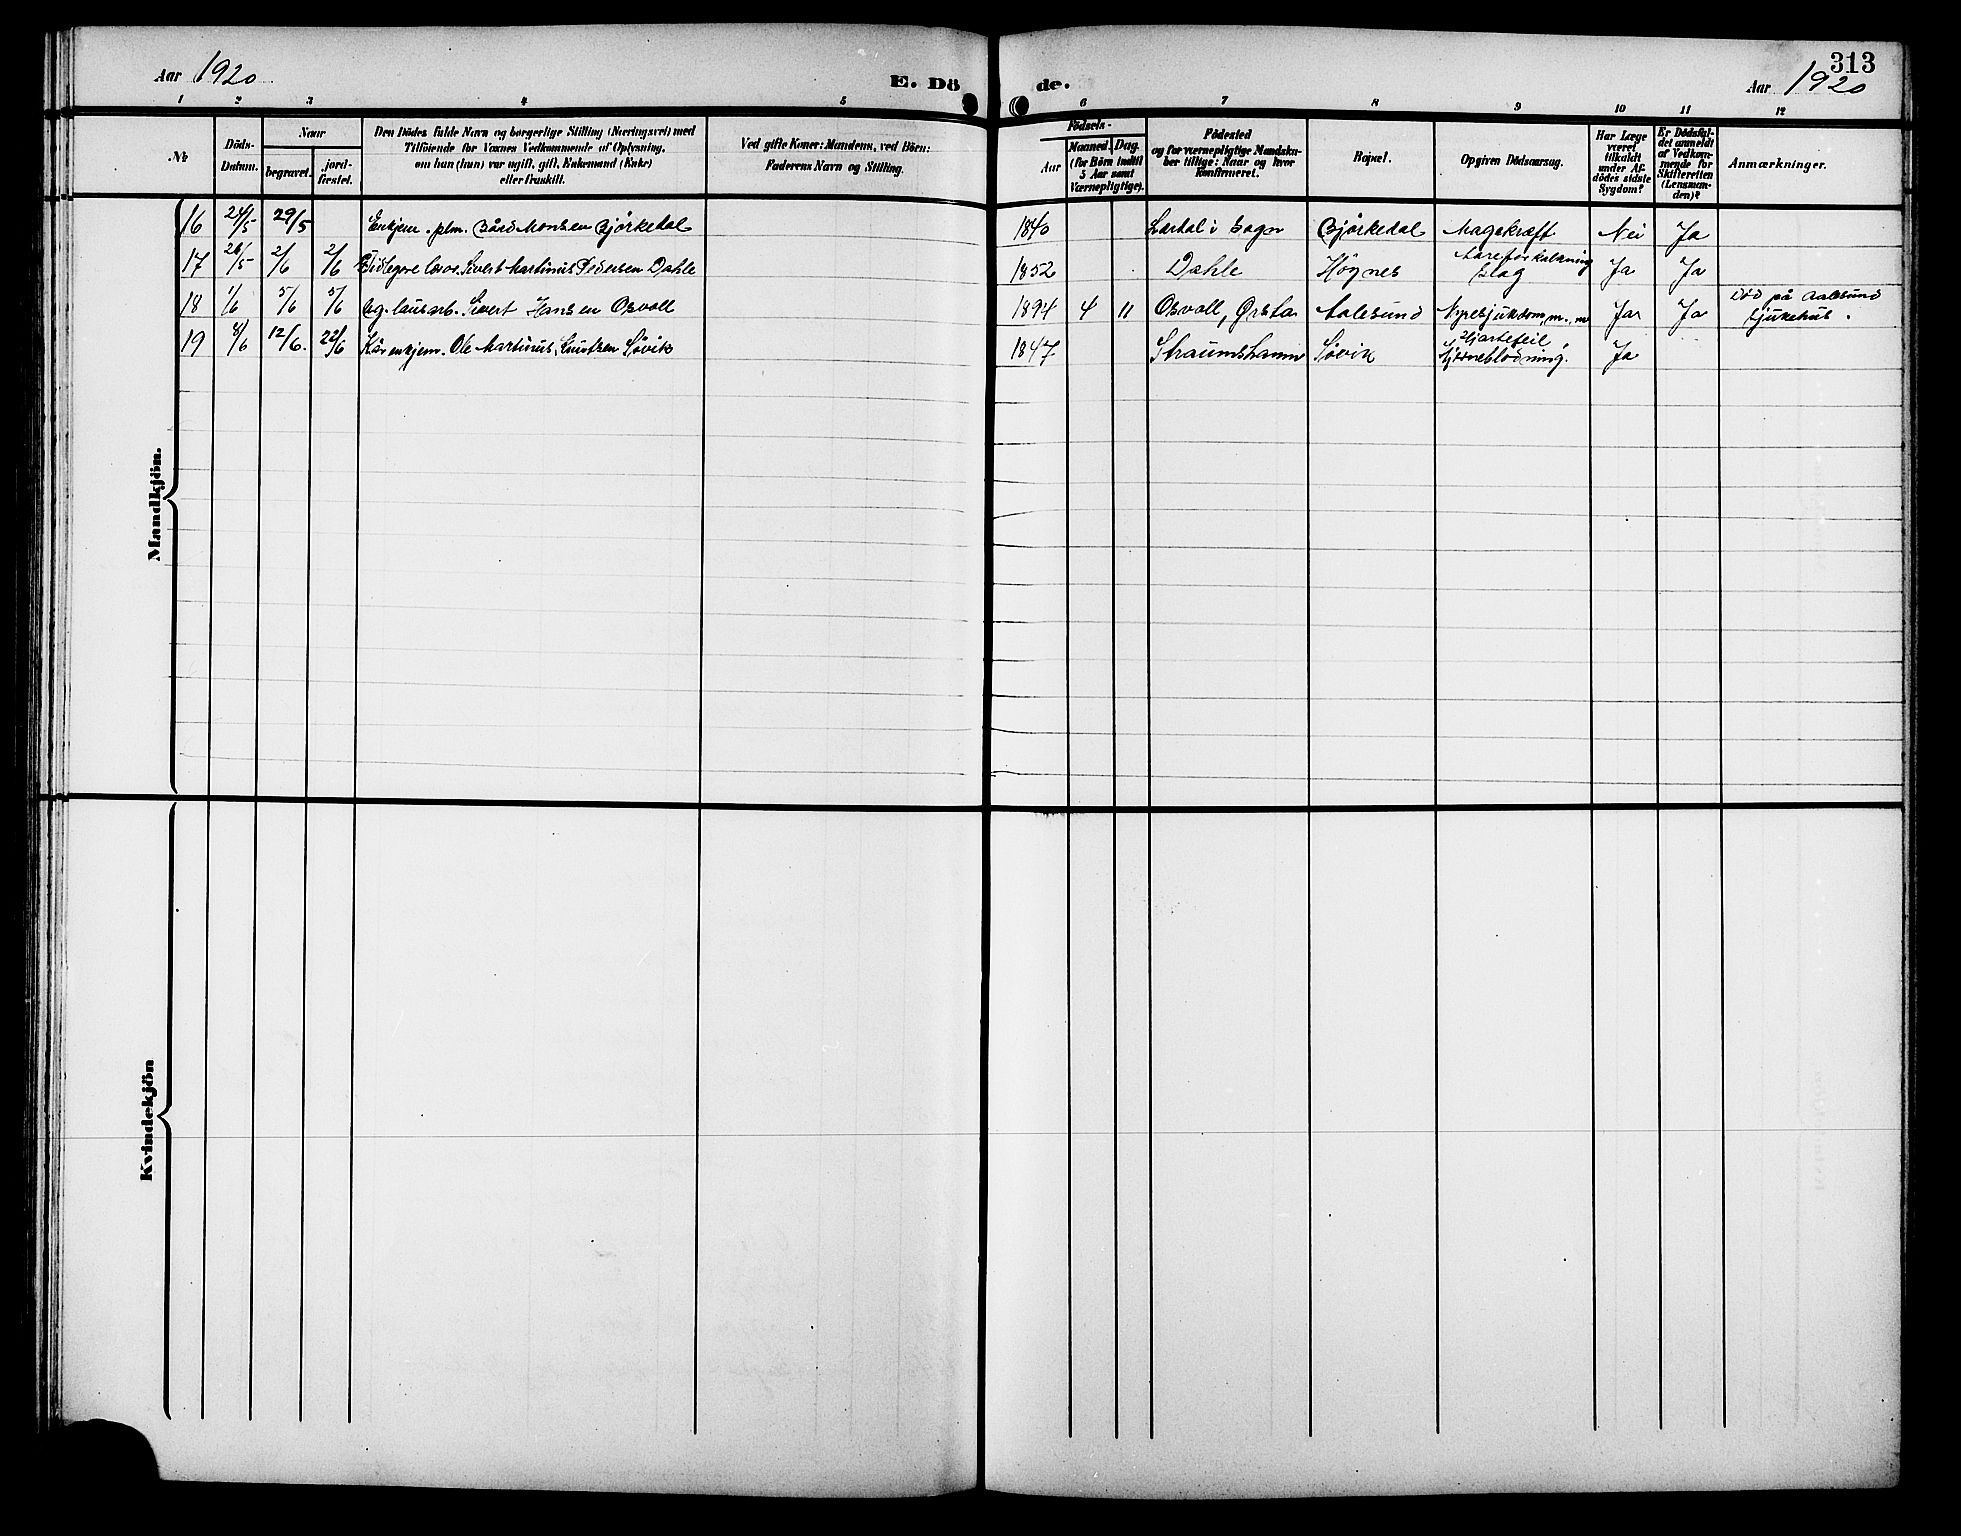 313
Aar 1920
E. Dö
de.
Aar 1920
1 2 3 4 5 6 7 8 9 10 11 12
№
Döds-
Datum.
Naar
begravet.
jord-
fæstet.
Den Dödes fulde Navn og borgerlige Stilling (Næringsvei) med
Tilföiende for Voxnes Vedkommende af Oplysning,
om han (hun) var ugift, gift, Enkemand (Enke)
eller fraskilt.
Ved gifte Koner: Mandens, ved Börn:
Faderens Navn og Stilling.
Födsels-
Aar
Maaned.
Dag.
(for Börn indtil
5 Aar samt
Værnepligtige).
Födested
og for værnepligtige Mandska-
ber tillige: Naar og hvor
konfirmeret.
Bopæl.
Opgiven Dödsaarsag.
Har Læge
været
tilkaldt
under Af-
dödes sidste
Sygdom?
Er Dödsfal-
det anmeldt
af Vedkom-
mende for
Skifteretten
(Lensman-
den)?
Anmærkninger.
16 24/5 29/5 Enkjem. plm. Bård Monsen Bjørkedal 1840 Lærdal i Sogn Bjørkedal Magekræft Nei Ja
17 26/5 2/6 2/6 Sivert Martinus Pedersen Dahle 1852 Dahle Høgnes Aareforkalkning slag Ja Ja
18 1/6 5/6 5/6 ug. lausarb. Sivert Hansen Osvoll 1894 4 11 Osvoll, Ørsta Aalesund Nyresjukdom, m. m Ja Ja Død på Aalesund sjukehus.
19 8/6 12/6. 22/6 Kårenkjem. Ole Martinus Knutsen Søvik 1847 Straumshamn Søvik Hjartefeil, hjerneblødning. Ja
Mandkjön.
Kvindekjön